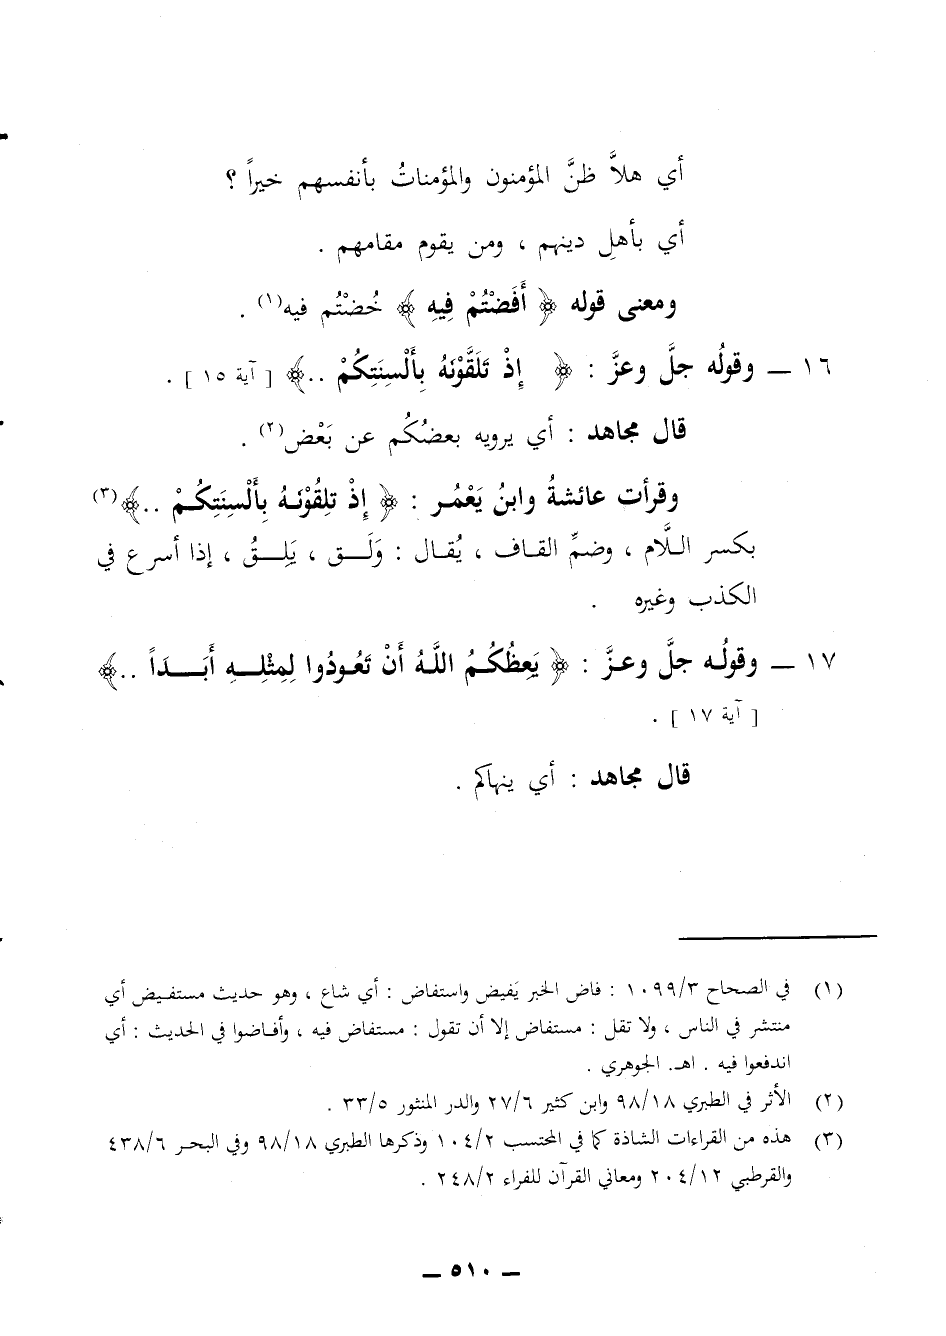 أي هلاَّ ظنَّ المؤمنون والمؤمناتُ بأنفسهم خيراً ؟
أي بأهلِ دينهم ، ومن يقوم مقامهم .
ومعنى قوله ﴿ أَفَضْتُمْ فِيهِ ﴾ خُضْتُم فيه(١) .
١٦ ــ وقولُه جلَّ وعزَّ : ﴿ إِذْ تَلَقَّوْنَهُ بِأَلْسِنَتِكُمْ ..﴾ [ آية ١٥ ] .
قال مجاهد : أي يرويه بعضُكُم عن بَعْض(٢) .
وقرأت عائشةُ وابنُ يَعْمُر : ﴿ إِذْ تَلِقُوْنَهُ بِأَلْسِنَتِكُمْ ..﴾(٣)
بكسر اللَّام ، وضمِّ القاف ، يُقال : وَلَق ، يَلِقُ ، إذا أسرع في
الكذب وغيره .
١٧ ــ وقولُه جلَّ وعزَّ : ﴿ يَعِظُكُمُ اللَّهُ أَنْ تَعُودُوا لِمِثْلِهِ أَبَداً ..﴾
[ آية ١٧ ] .
قال مجاهد : أي ينهاكم .
(١) في الصحاح ١٠٩٩/٣ : فاض الخبر يَفيض واستفاض : أي شاع ، وهو حديث مستفيض أي
منتشر في الناس ، ولا تقل : مستفاض إلا أن تقول : مستفاض فيه ، وأفاضوا في الحديث : أي
اندفعوا فيه . اهـ. الجوهري .
(٢) الأثر في الطبري ٩٨/١٨ وابن كثير ٢٧/٦ والدر المنثور ٣٣/٥ .
(٣) هذه من القراءات الشاذة كما في المحتسب ١٠٤/٢ وذكرها الطبري ٩٨/١٨ وفي البحر ٤٣٨/٦
والقرطبي ٢٠٤/١٢ ومعاني القرآن للفراء ٢٤٨/٢ .
ــ ٥١٠ ــ